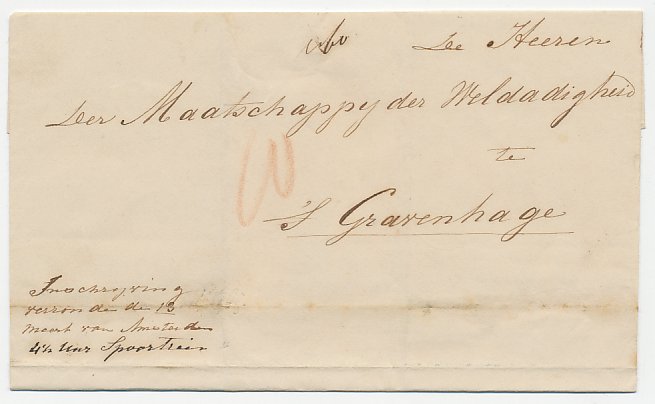 De Heeren
Der Maatschappy der Weldadigheid
te
's Gravenhage
Inschryving
verzonden de 13
maart van Amsterdam
4½ Uur Spoortrein